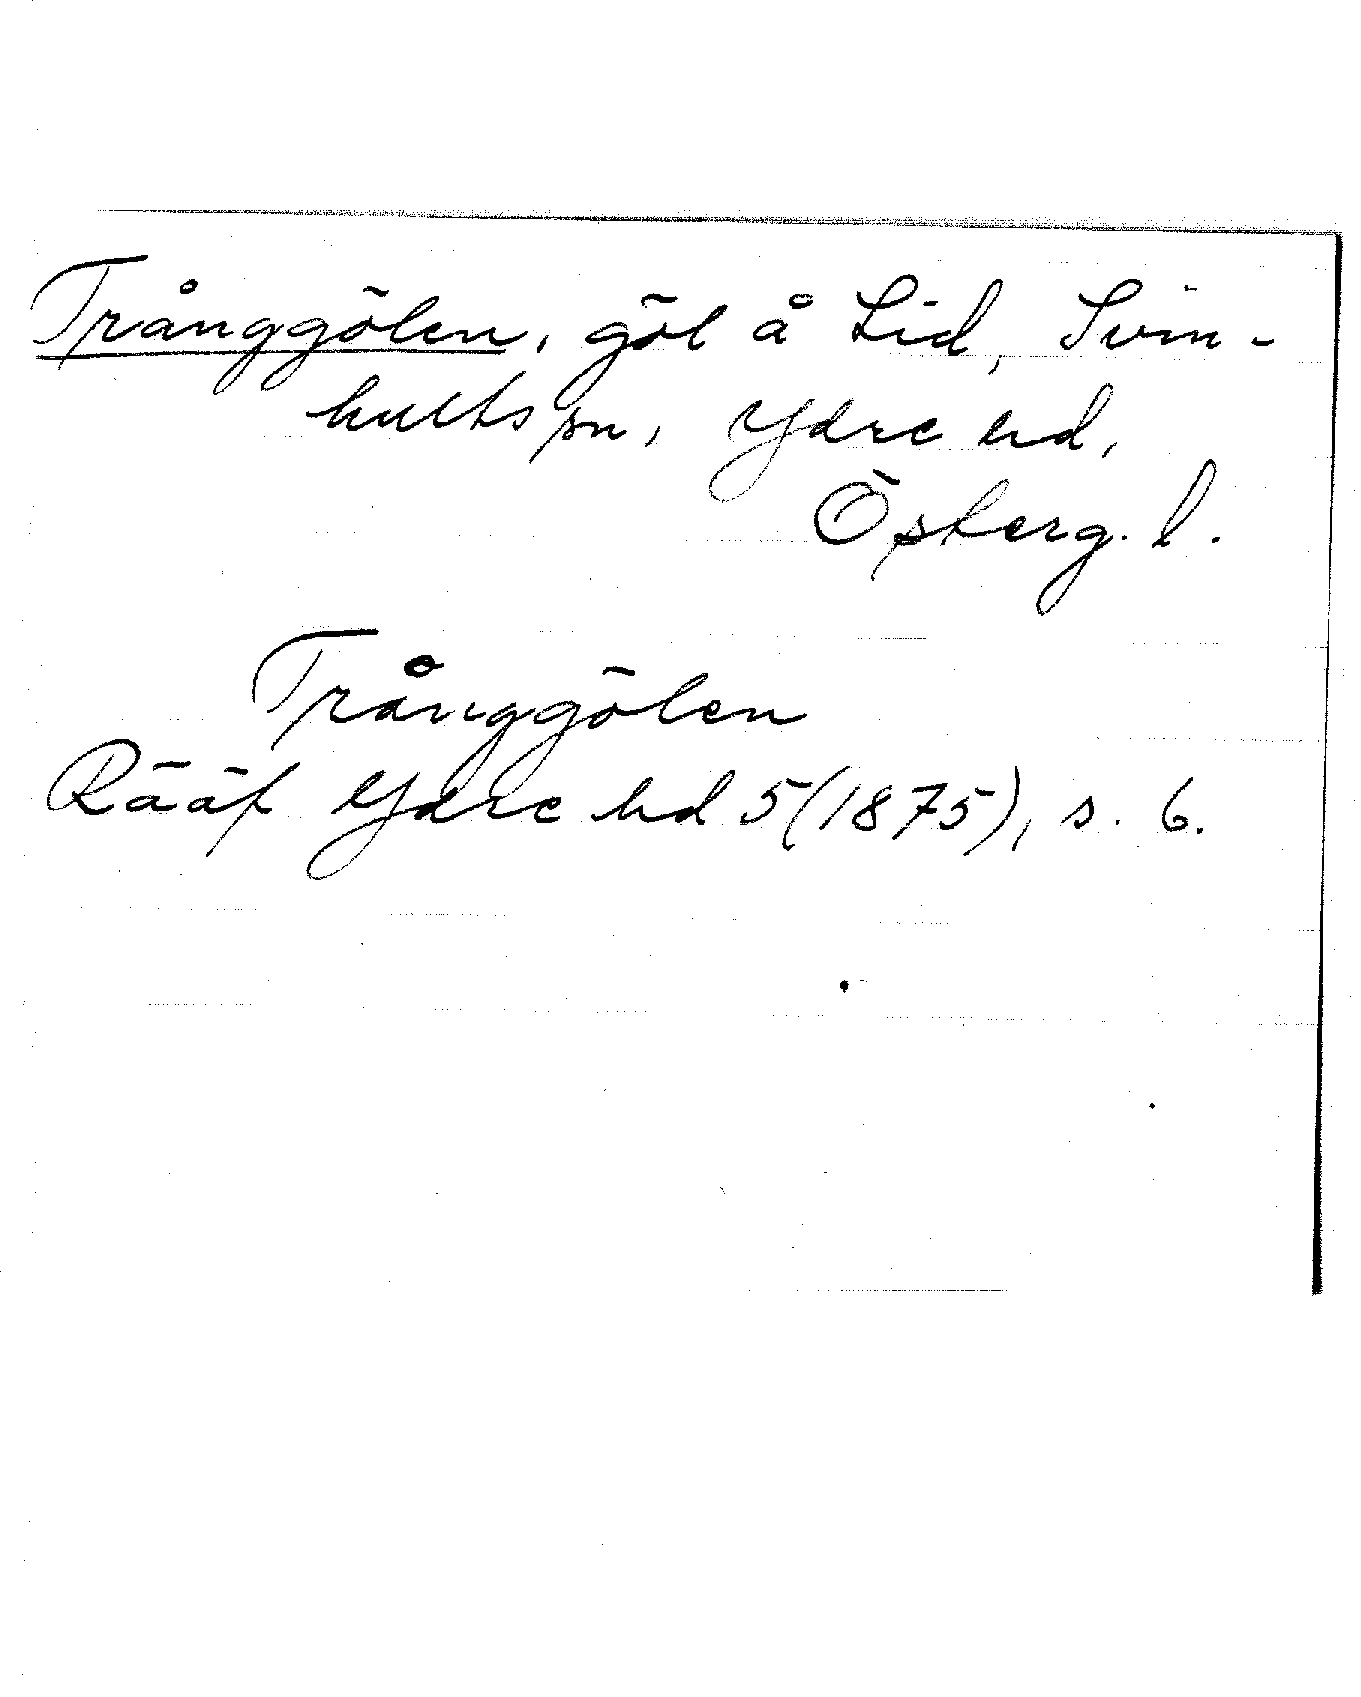 Trånggölen, göl å Lid, Svin-
hults sn, Ydre hd,
Österg. l.
Trånggölen
Rääf Ydre hd 5(1875), s. 6.